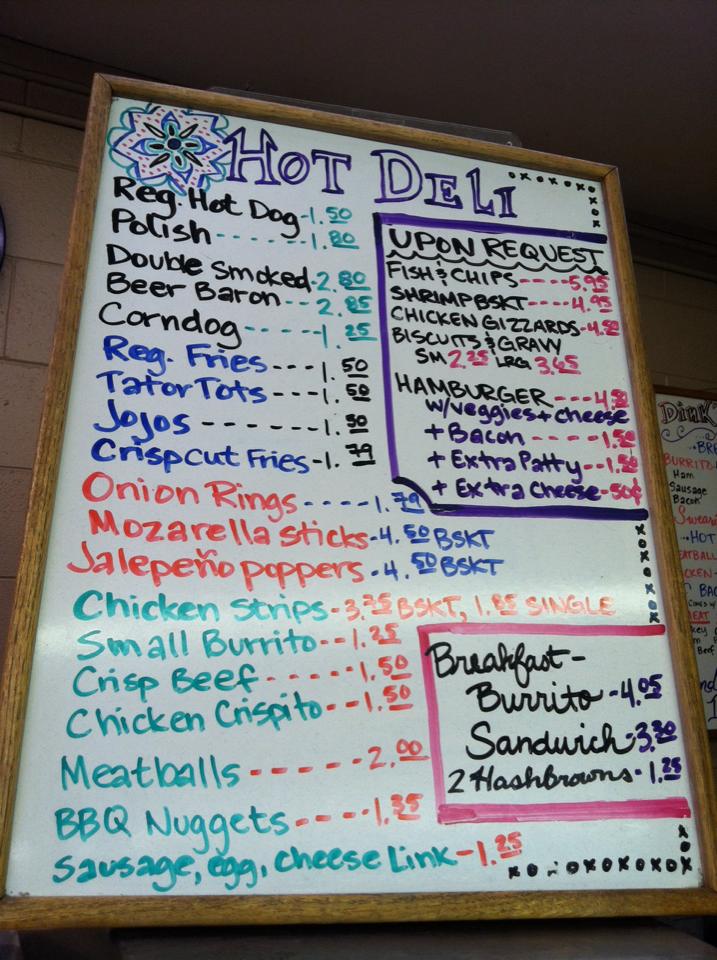 HOT DELI
Reg. Hot Dog - 1.50
Polish ------ 1.80
Double Smoked - 2.80
Beer Baron -- 2.85
Corndog ----- 1.25
Reg. Fries --- 1.50
Tator Tots --- 1.50
Jojos ------- 1.50
Crispcut Fries - 1.79
Onion Rings ---- 1.79
Mozarella Sticks - 4.50 BSKT
Jalepeño poppers - 4.50 BSKT
Chicken Strips - 3.75 BSKT, 1.85 SINGLE
Small Burrito -- 1.25
Crisp Beef ----- 1.50
Chicken Crispito -- 1.50
Meatballs ----- 2.00
BBQ Nuggets ---- 1.35
Sausage, egg, cheese Link - 1.25
UPON REQUEST
FISH & CHIPS ---- 5.95
SHRIMP BSKT ---- 4.95
CHICKEN GIZZARDS - 4.50
BISCUITS & GRAVY
SM 2.25 LRG 3.65
HAMBURGER --- 4.50
w/veggies + cheese
+ Bacon ---- 1.50
+ Extra Patty -- 1.50
+ Extra Cheese - 50¢
Breakfast -
Burrito - 4.05
Sandwich - 3.30
2 Hashbrowns - 1.25
BURRITO
Ham
Sausage
Bacon
HOT